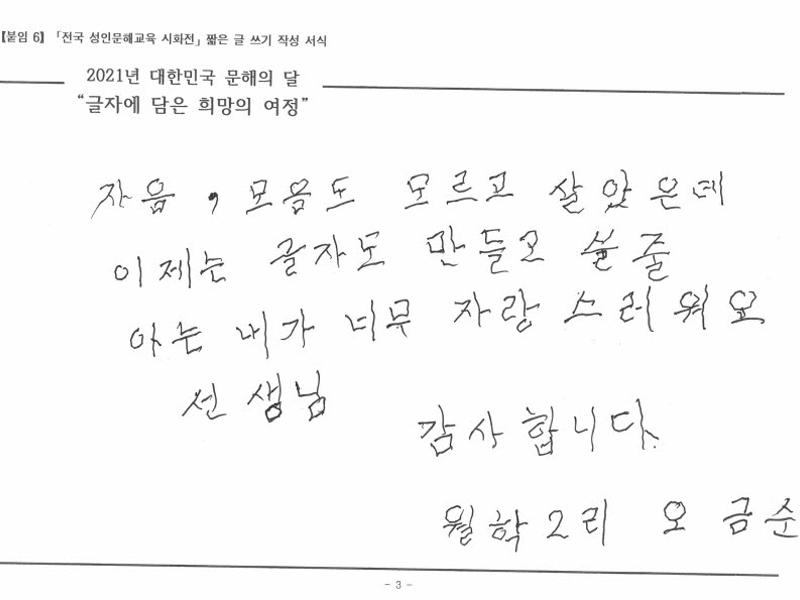 【붙임 6】 「전국 성인문해교육 시화전」 짧은 글 쓰기 작성 서식
2021년 대한민국 문해의 달
“글자에 담은 희망의 여정”
자음, 모음도 모르고 살았은데
이제는 글자도 만들고 쓸 줄
아는 내가 너무 자랑스러워요
선생님
감사합니다.
월학2리 오금순
- 3 -